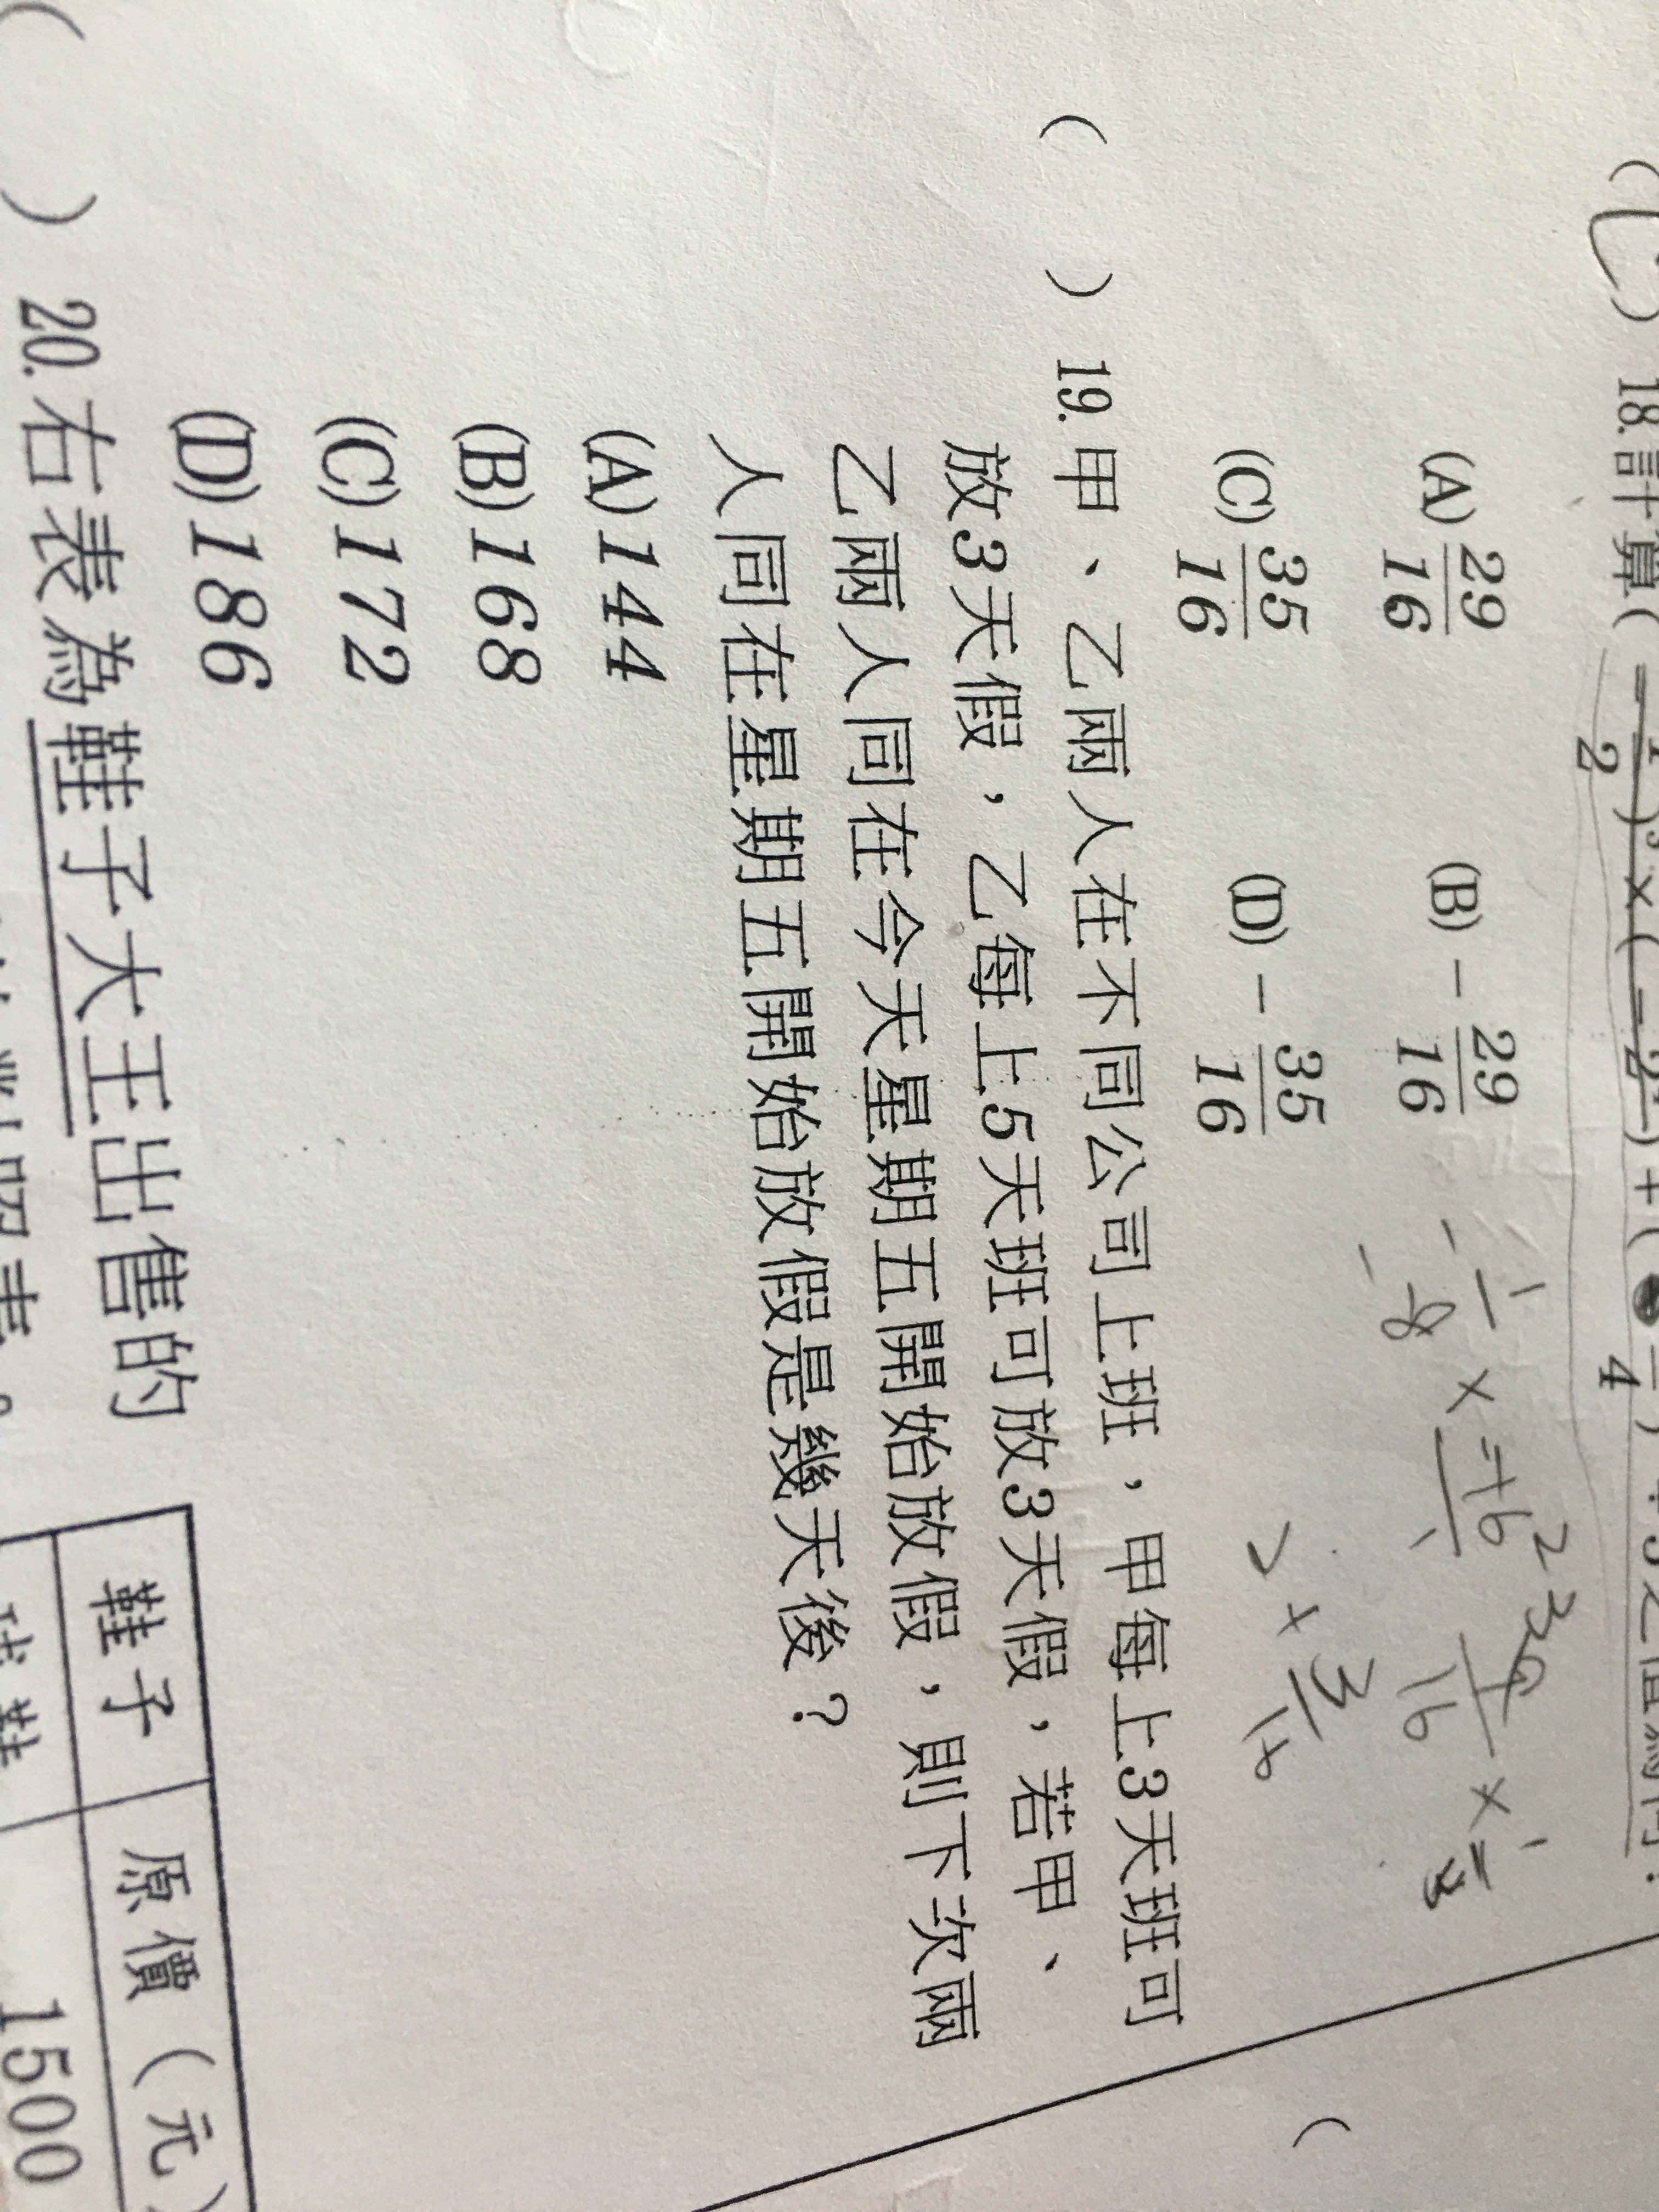 18.計算(
(A) 29/16 (B) − 29/16
(C) 35/16 (D) − 35/16
( ) 19.甲、乙兩人在不同公司上班，甲每上3天班可
放3天假，乙每上5天班可放3天假，若甲、
乙兩人同在今天星期五開始放假，則下次兩
人同在星期五開始放假是幾天後？
(A)144
(B)168
(C)172
(D)186
( ) 20.右表為鞋子大王出售的
鞋子 原價（元）
1500